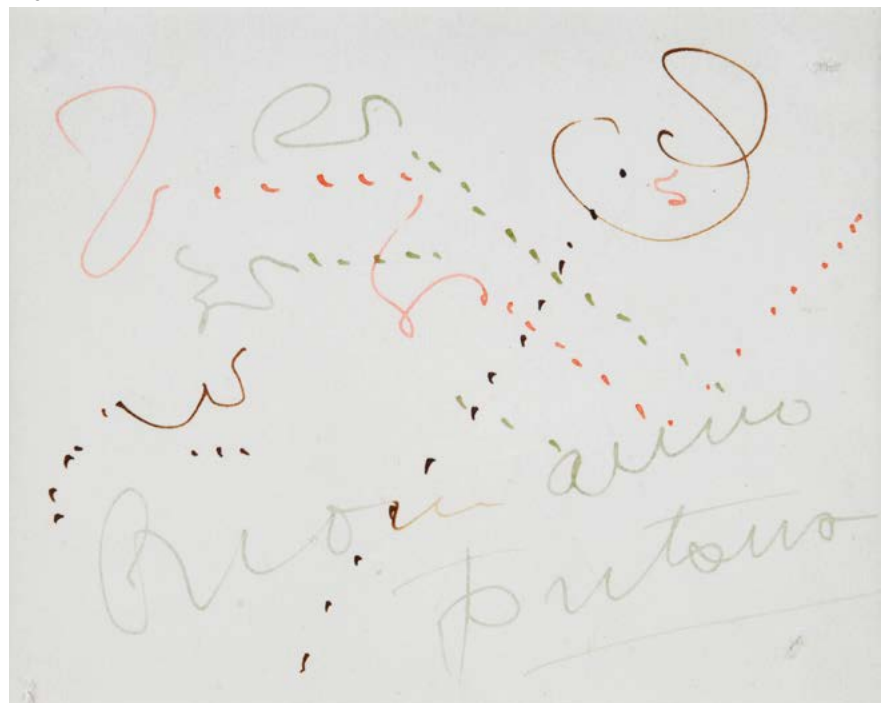 Buon anno
Fontana